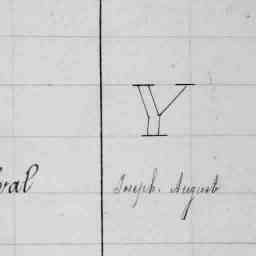 Y
Joseph. August